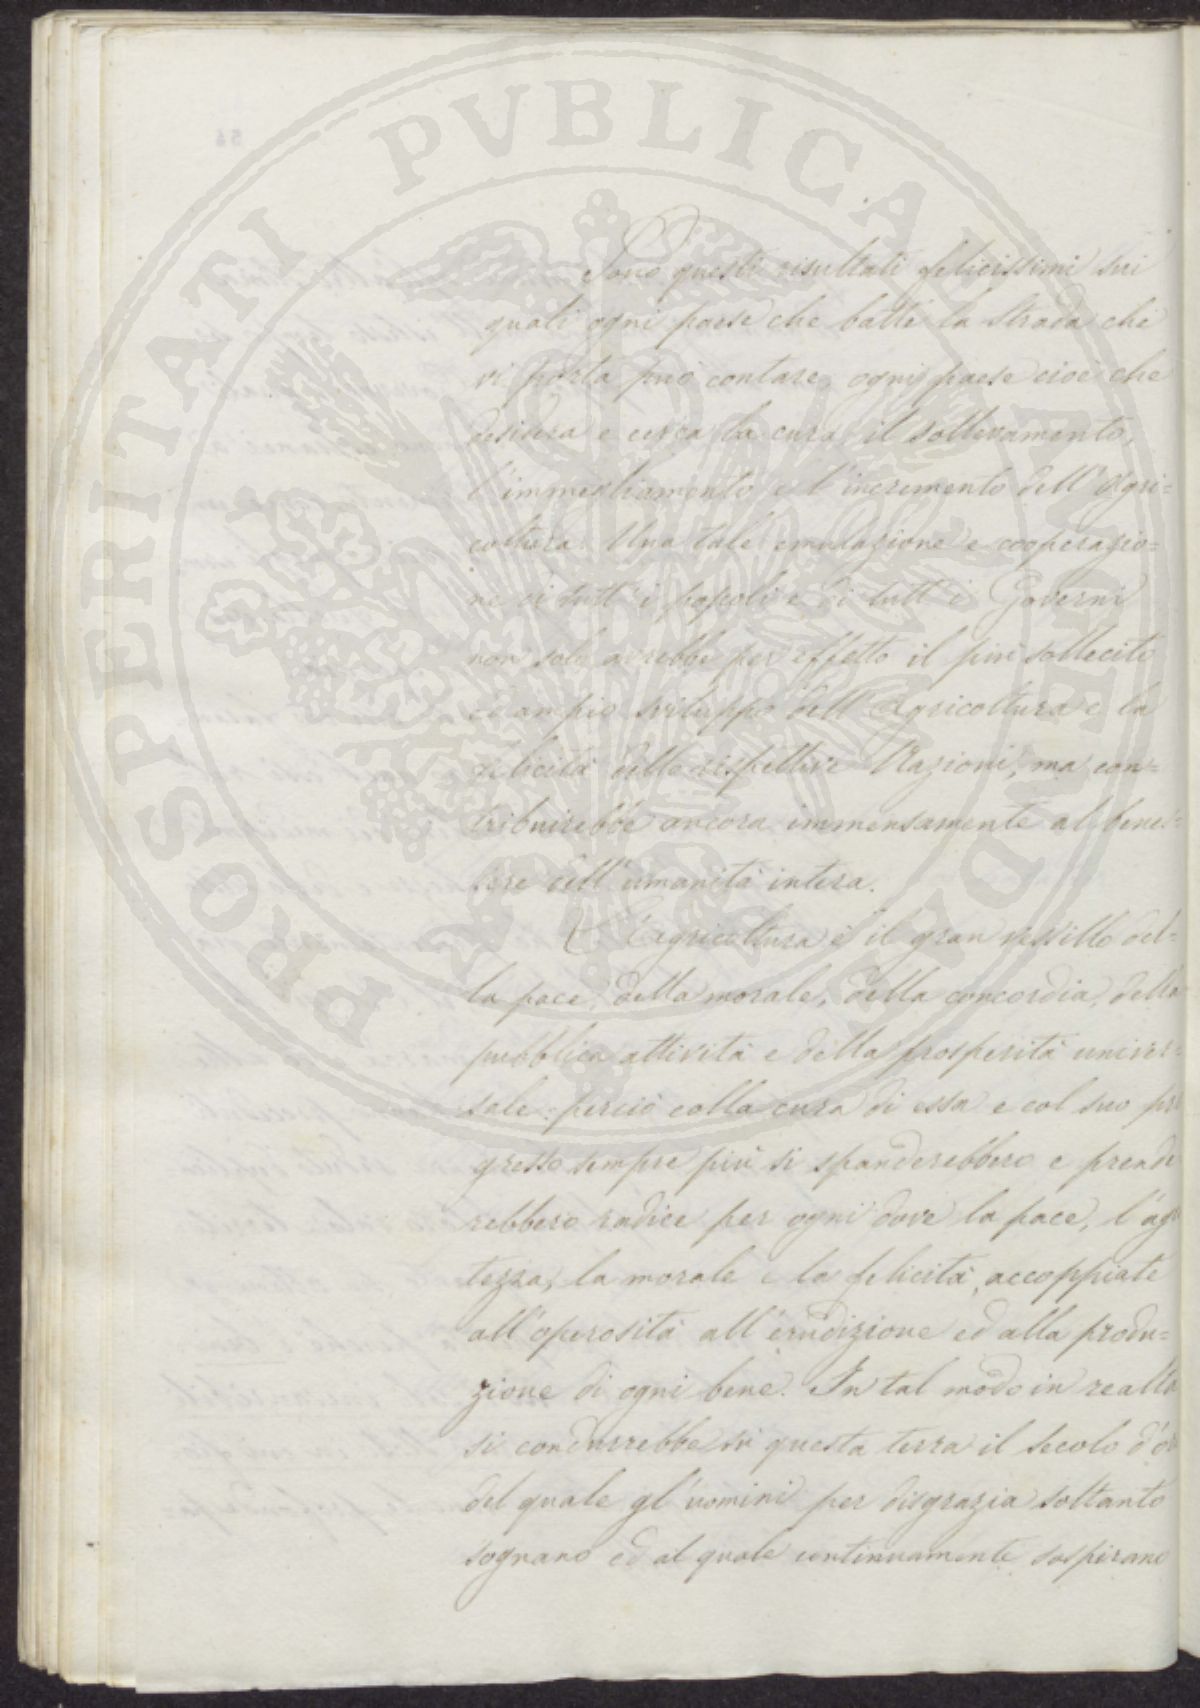 Sono questi risultati felicissimi sui
quali ogni paese che batte la strada che
vi porta può contare, ogni paese cioè che
desidera e cerca la cura, il sollevamento,
l'immegliamento e l'incremento dell'Agri=
coltura. Una tale emulazione e cooperazio=
ne di tutt'i popoli e di tutt'i Governi
non solo avrebbe per effetto il più sollecito
ed ampio sviluppo dell'Agricoltura e la
felicità delle rispettive Nazioni, ma con=
tribuirebbe ancora immensamente al benes=
sere dell'umanità intera.
L'agricoltura è il gran vessillo del=
la pace, della morale, della concordia, della
pubblica attività e della prosperità univer=
sale: perciò colla cura di essa e col suo pro
gresso sempre più si spanderebbero e prende
rebbero radice per ogni dove la pace, l'agia
tezza, la morale e la felicità, accoppiate
all'operosità all'erudizione ed alla produ=
zione di ogni bene. In tal modo in realtà
si condurrebbe su questa terra il secolo d'oro
del quale gl'uomini per disgrazia soltanto
sognano ed al quale continuamente sospirano
PROSPERITATI PVBLICAE AVGENDAE